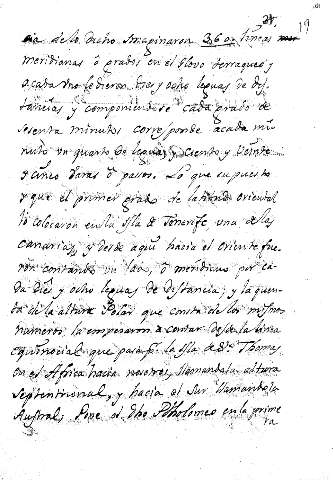 19
de lo dicho Imaginaron 360 lineas
meridianas ô grados en el Globo terraqueo y
a cada uno le dieron Dies y ocho leguas de dis
tancias y componiendose cada grado de
sesenta minutos corresponde a cada mi
nuto un quarto de leguas, y ciento y veinte
y cinco varas ô pasos. Lo que supuesto
y que el primer grado de latitude Oriental
lo colocaron en la Isla de Tenerife una de las
Canarias, y desde aqui hacia el Oriente fue
ron contando un lado, ô meridiano por ca
da Dies y ocho leguas de distancia; y la quen
ta de la altura Polar que consta de los mismos
numeros la empesaron a contar desde la linea
equinocial que pasa pr. la Isla de Sto. Thomas
en el Africa hacia nosotros, llamandola altura
septentrional, y hacia el Sur llamandola
Austral. Pone el dho Ptholomeo en la prime
ra